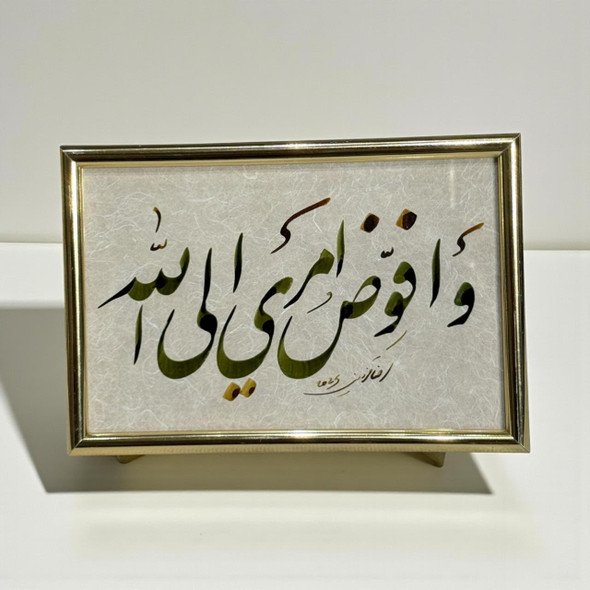 وَ افوّض امري الى الله